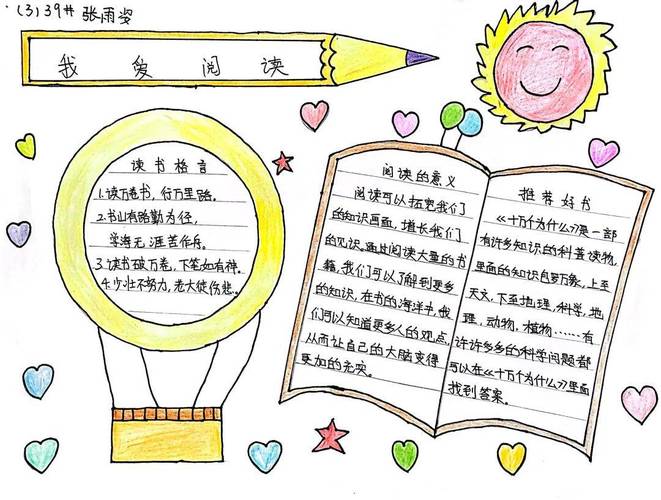 (3)39# 张雨姿
我 爱 阅 读
读书格言
1.读万卷书，行万里路。
2.书山有路勤为径，
学海无涯苦作舟。
3.读书破万卷，下笔如有神。
4.少壮不努力，老大徒伤悲。
阅读的意义
阅读可以拓宽我们
的知识画面，增长我们
的见识。通过阅读大量的书
籍，我们可以了解到更多
的知识，在书的海洋中，我
们可以知道更多人的观点，
从而让自己的大脑变得
更加的充实。
推荐好书
《十万个为什么》是一部
有许多知识的科普读物，
里面的知识包罗万象，上至
天文，下至地理，科学，地
理，动物，植物……有
许许多多的科学问题都
可以在《十万个为什么》里面
找到答案。